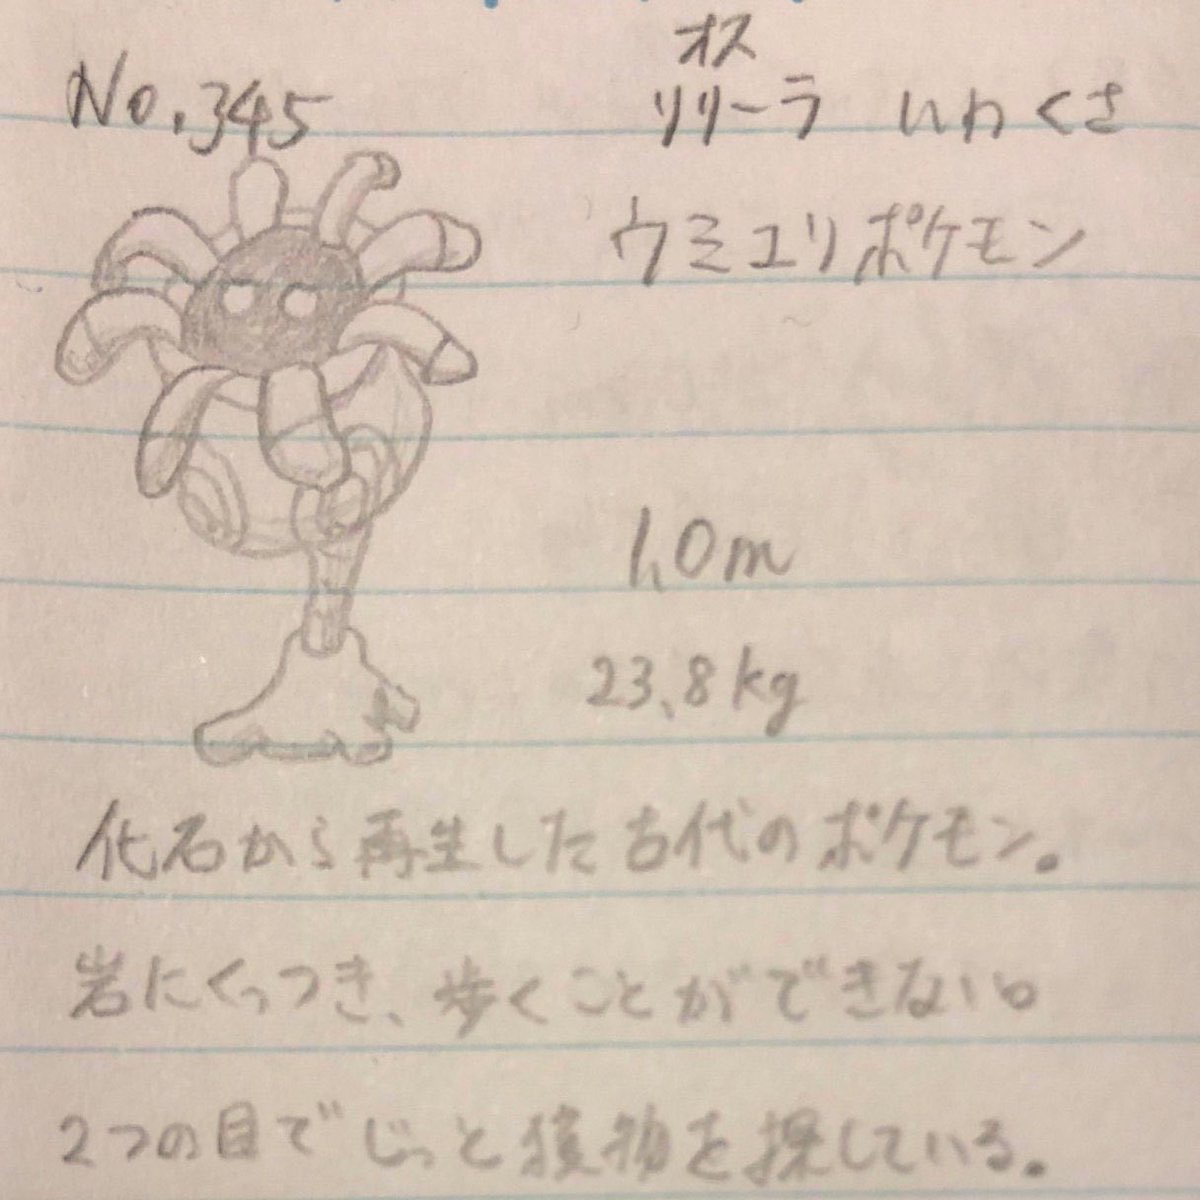 No.345
オス
リリーラ いわ くさ
ウミユリポケモン
1.0m
23.8kg
化石から再生した古代のポケモン。
岩にくっつき、歩くことができない。
2つの目でじっと獲物を探している。